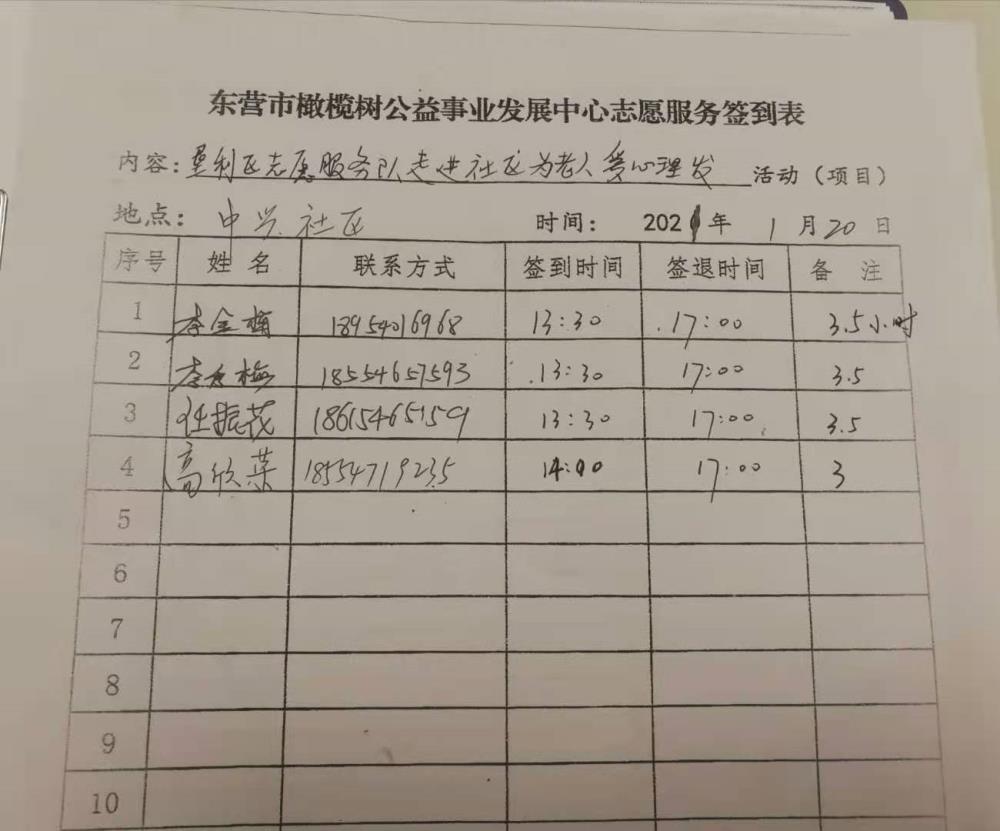 东营市橄榄树公益事业发展中心志愿服务签到表
内容：垦利区志愿服务队走进社区为老人爱心理发 活动（项目）
地点：中兴社区 时间：2021年1月20日
序号 姓名 联系方式 签到时间 签退时间 备注
1 李金梅 18954016968 13:30 17:00 3.5小时
2 李 梅 18554657593 13:30 17:00 3.5
3 任振花 18615465159 13:30 17:00 3.5
4 高欣荣 18554719235 14:00 17:00 3
5
6
7
8
9
10